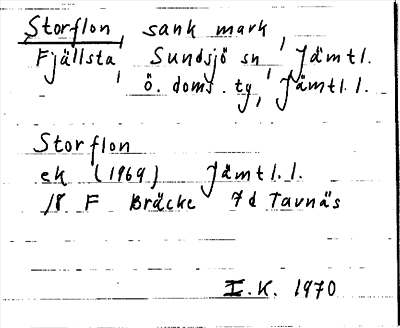 Storflon, sank mark,
Fjällsta, Sundsjö sn, Jämtl.
ö. doms. ty, Jämtl. l.
Storflon
ek (1969) Jämtl. l.
18 F Bräcke 7d Tavnäs
I. K. 1970